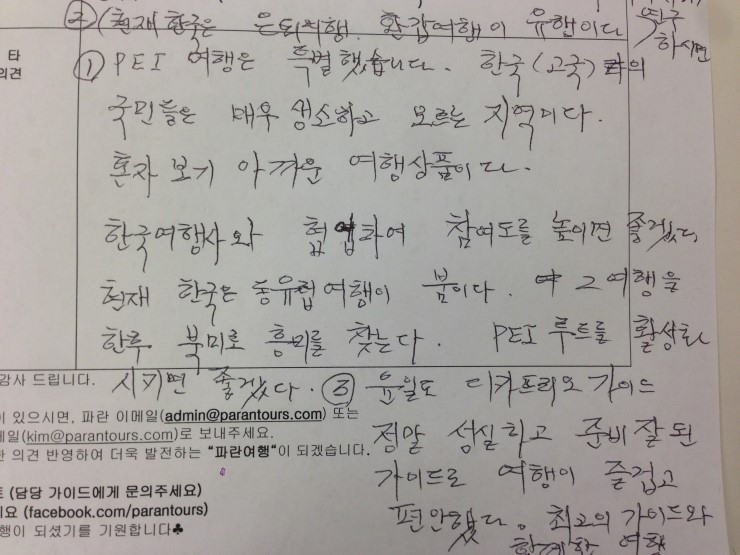 ② (현재 한국은 은퇴여행. 환갑여행이 유행이다
하시면
타
의견
① PEI 여행은 특별했습니다. 한국(고국)의
국민들은 매우 생소하고 모르는 지역이다.
혼자 보기 아까운 여행상품이다.
한국여행사와 협업하여 참여도를 높이면 좋겠다.
현재 한국은 동유럽여행이 붐이다. 그 여행을
한후 북미로 흥미를 찾는다. PEI 루트를 활성화
시키면 좋겠다. ③ 윤일도 디카프리오 가이드
정말 성실하고 준비 잘 된
가이드로 여행이 즐겁고
편안했다. 최고의 가이드와
함께한 여행
감사 드립니다.
이 있으시면, 파란 이메일(admin@parantours.com) 또는
메일(kim@parantours.com)로 보내주세요.
한 의견 반영하여 더욱 발전하는 "파란여행"이 되겠습니다.
트 (담당 가이드에게 문의주세요)
요 (facebook.com/parantours)
행이 되셨기를 기원합니다♣